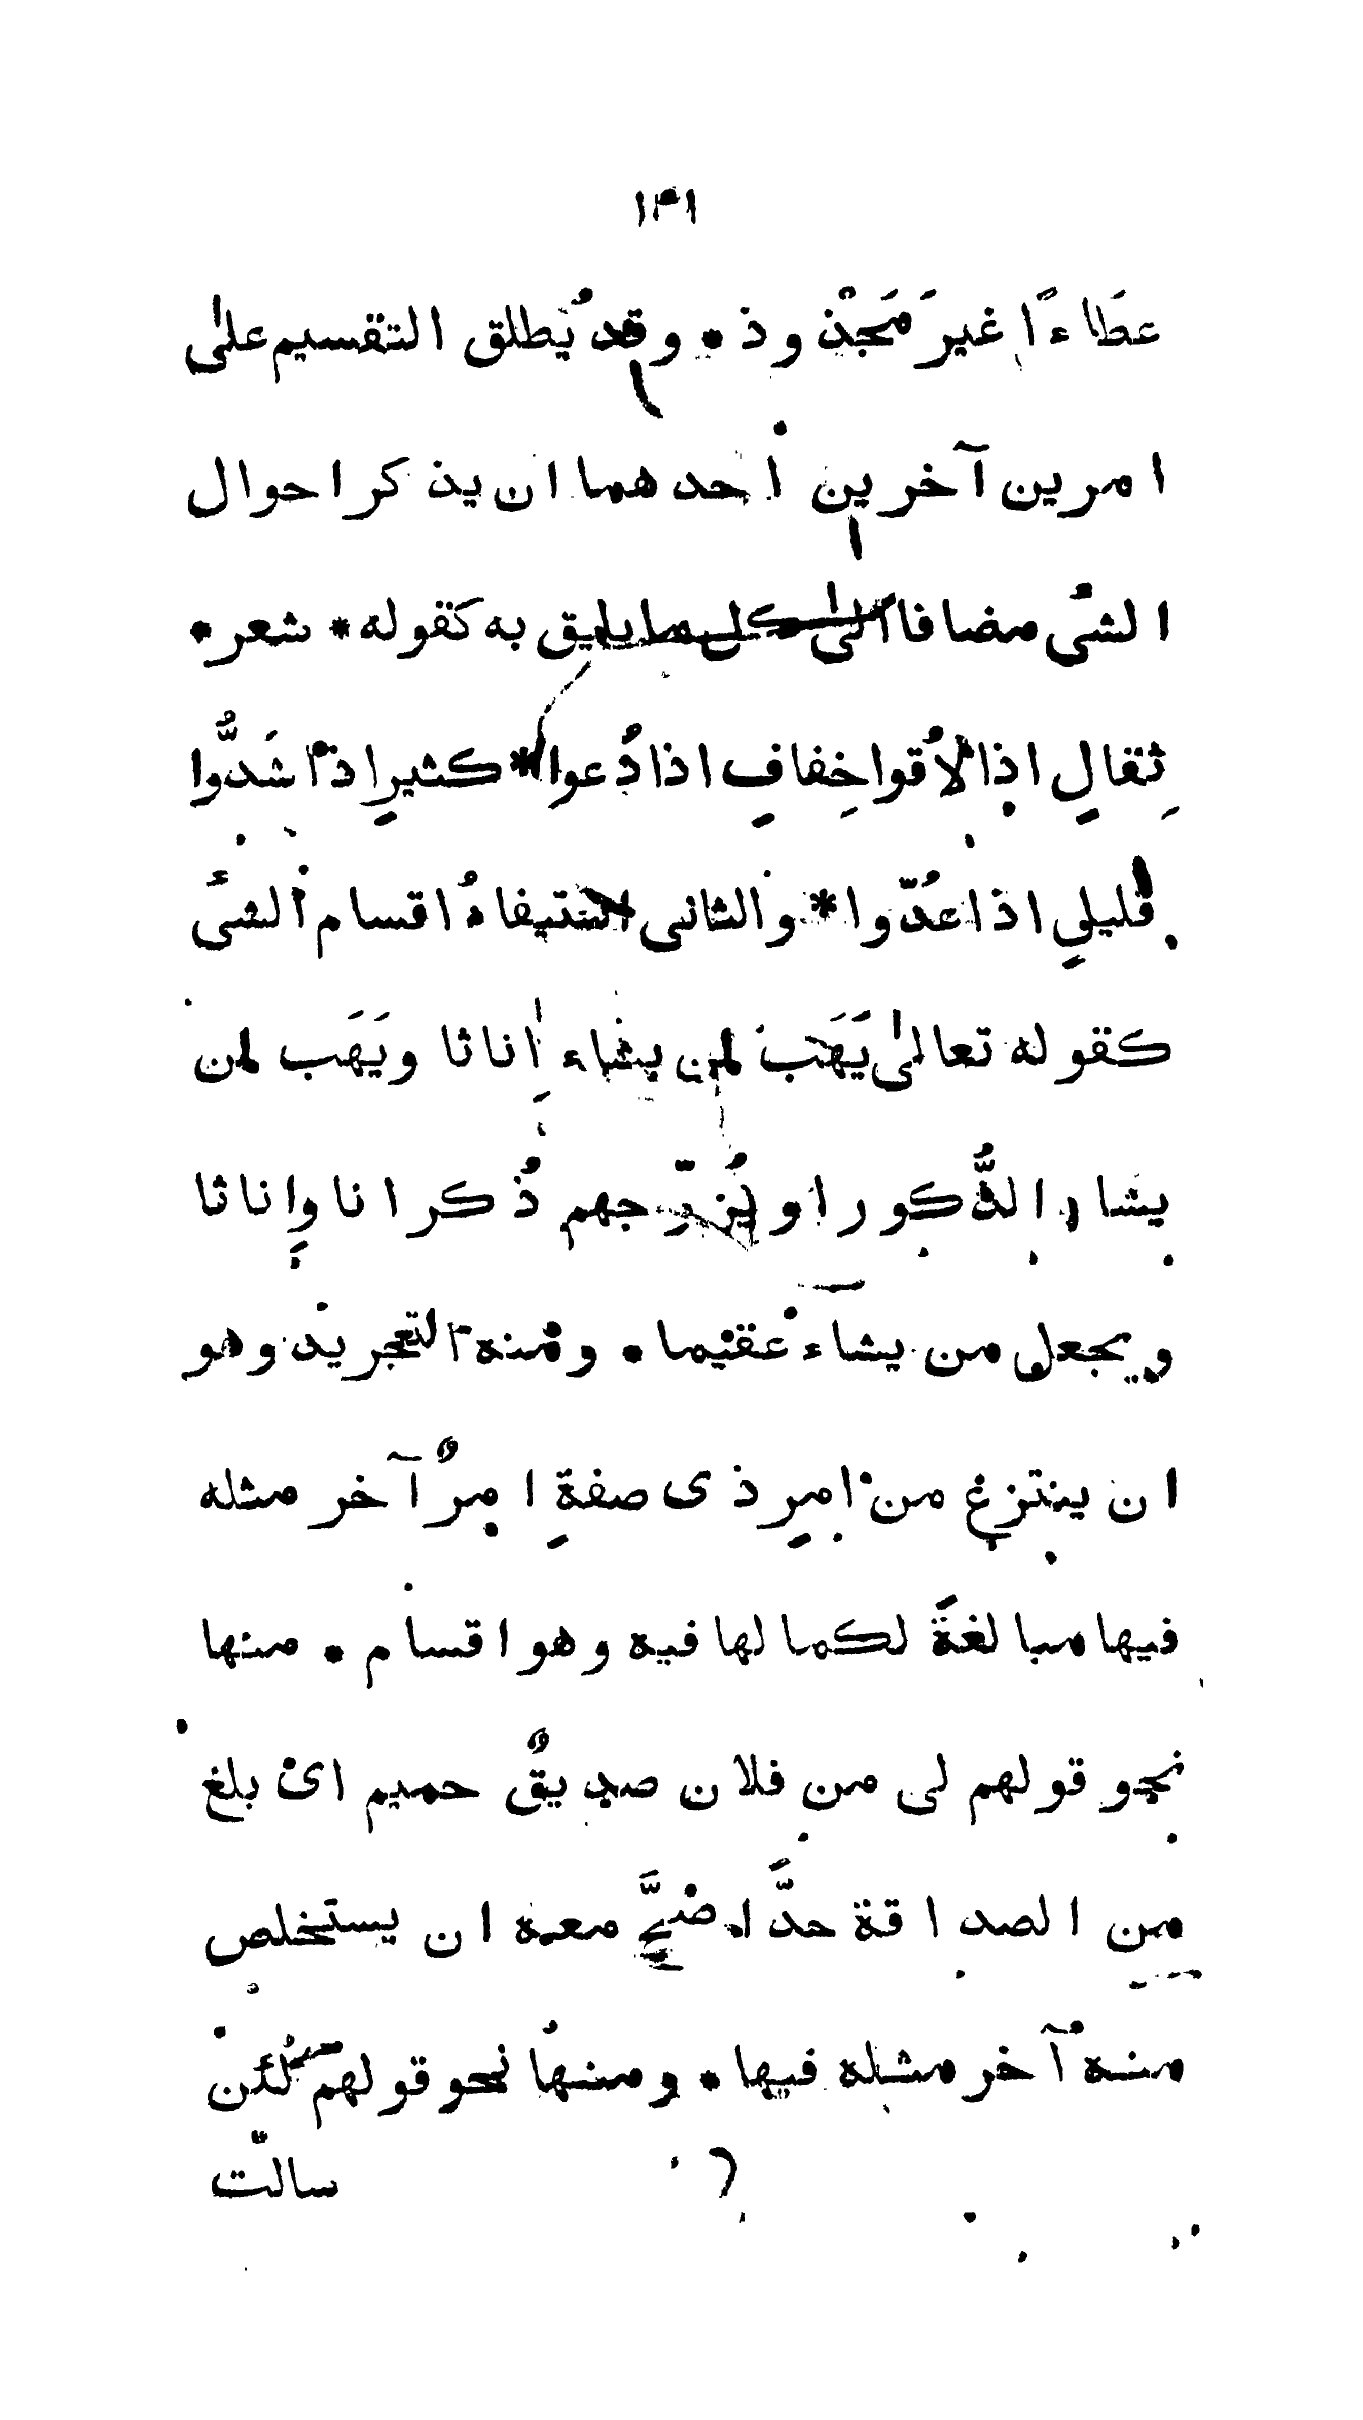 ١٣١
عطَاءًا غيرَ مَجْذوذ * وقد يُطلق التقسيم على
امرين آخرين احدهما ان يذكر احوال
الشئ مضافا الى كل ما يليق به كقوله * شعر *
ثِقالٍ اذا لاقوا خِفافٍ اذا دُعوا * كثيرٍ اذا شَدُّوا
قليلٍ اذا عُدّوا * والثانى استيفاءُ اقسام الشئ
كقوله تعالىٰ يَهَب لمن يشاء اِناثا ويَهَب لمن
يشاء الذُّكور او يُزوّجهم ذُكرانا واِناثا
ويجعل من يشآء عقيما * ومنه التجريد وهو
ان ينتزع من امرٍ ذى صفةٍ امرٌ آخر مثله
فيها مبالغةً لكمالها فيه وهو اقسام * منها
نحو قولهم لى من فلان صديقٌ حميم اى بلغ
من الصداقة حدًّا صَحَّ معه ان يستخلص
منه آخر مثله فيها * ومنها نحو قولهم لئن
سالت